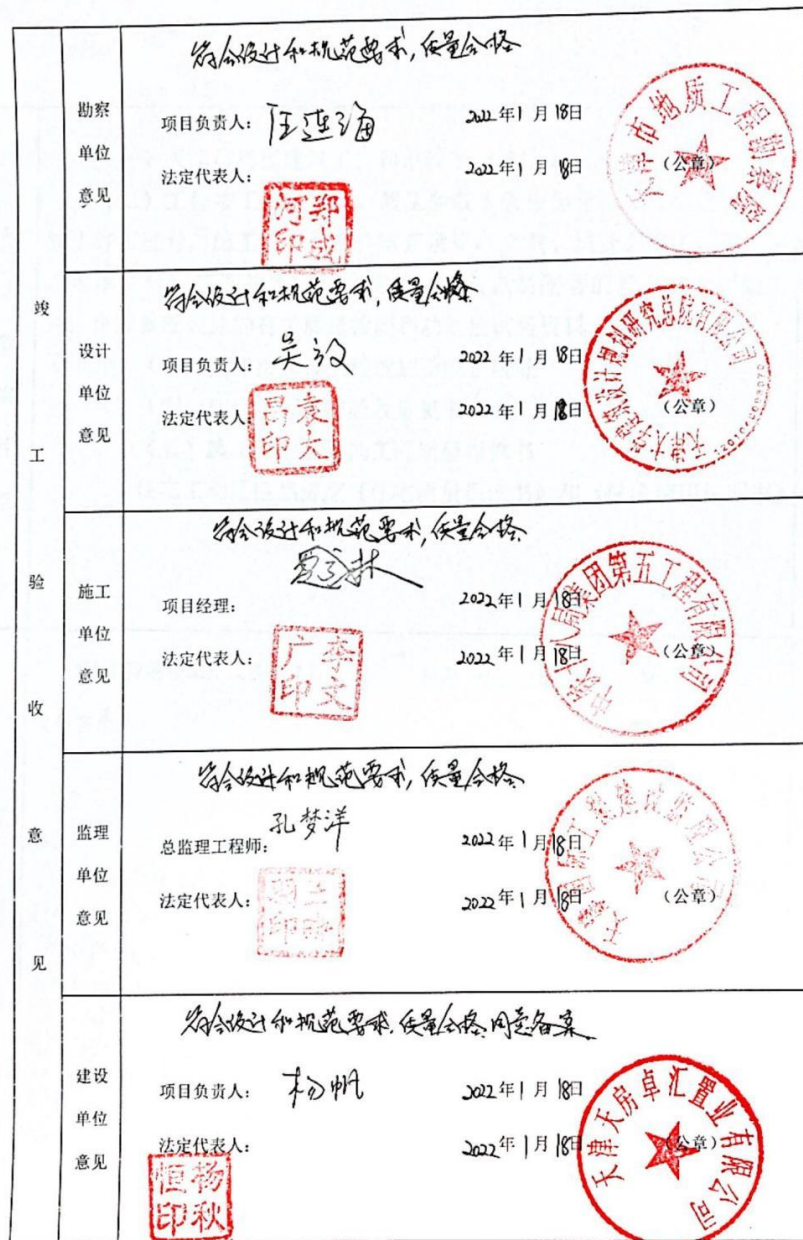 竣工验收意见
勘察单位意见
符合设计和规范要求,质量合格
项目负责人: 汪连海 2022年1月18日
法定代表人: 2022年1月18日 (公章)
郑成河印
天津市地质工程勘察院
设计单位意见
符合设计和规范要求,质量合格
项目负责人: 2022年1月18日
法定代表人: 2022年1月18日 (公章)
袁大昌印
天津大学建筑设计规划研究总院有限公司
施工单位意见
符合设计和规范要求,质量合格
项目经理: 2022年1月18日
法定代表人: 2022年1月18日 (公章)
李文广印
中铁十八局集团第五工程有限公司
监理单位意见
符合设计和规范要求,质量合格
总监理工程师: 孔梦洋 2022年1月18日
法定代表人: 2022年1月18日 (公章)
建设单位意见
符合设计和规范要求,质量合格,同意备案
项目负责人: 杨帆 2022年1月18日
法定代表人: 2022年1月18日 (公章)
杨秋恒印
天津天房卓汇置业有限公司